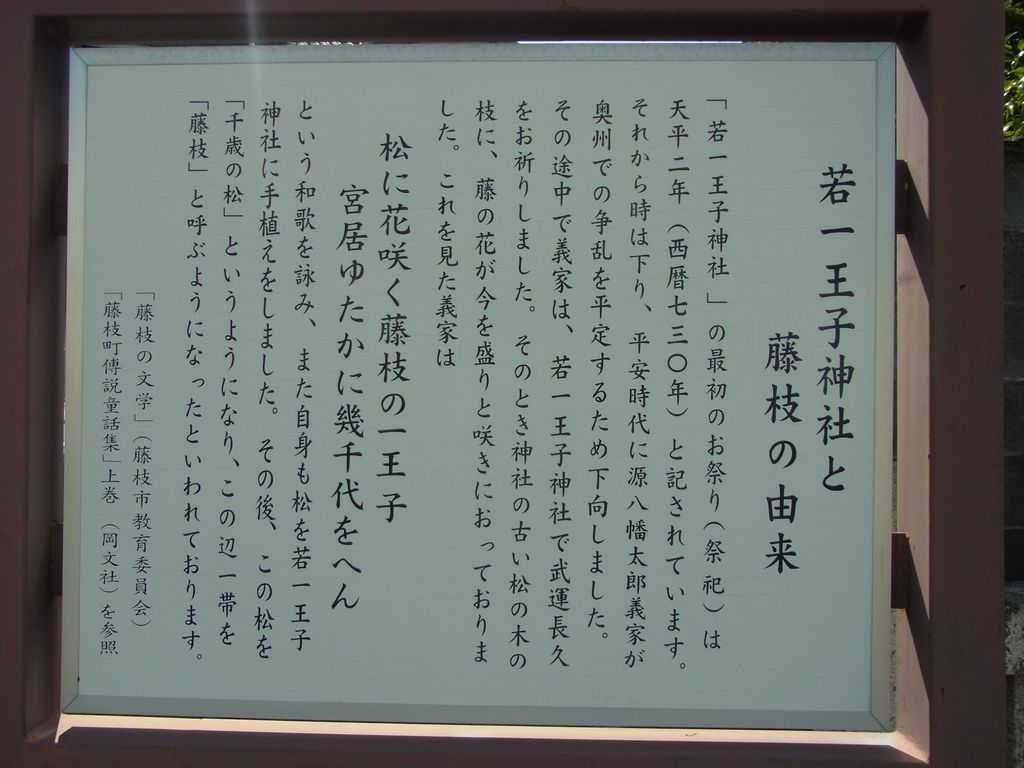 若一王子神社と
藤枝の由来
「若一王子神社」の最初のお祭り(祭祀)は
天平二年(西暦七三〇年)と記されています。
それから時は下り、平安時代に源八幡太郎義家が
奥州での争乱を平定するため下向しました。
その途中で義家は、若一王子神社で武運長久
をお祈りしました。そのとき神社の古い松の木の
枝に、藤の花が今を盛りと咲きにおっておりま
した。これを見た義家は
松に花咲く藤枝の一王子
宮居ゆたかに幾千代をへん
という和歌を詠み、また自身も松を若一王子
神社に手植えをしました。その後、この松を
「千歳の松」というようになり、この辺一帯を
「藤枝」と呼ぶようになったといわれております。
「藤枝の文学」(藤枝市教育委員会)
「藤枝町傳説童話集」上巻(岡文社)を参照